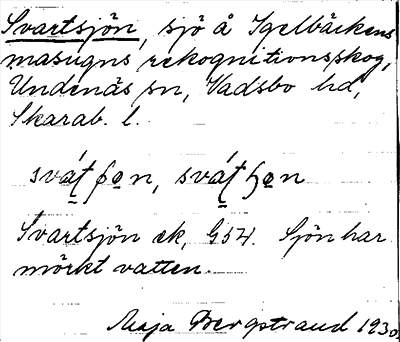 Svartsjön, sjö å Igelbäckens
masugns rekognitionsskog,
Undenäs sn, Vadsbo hd,
Skarab. l.
Svartsjön ek, G54. Sjön har
mörkt vatten.
Maja Bergstrand 1930